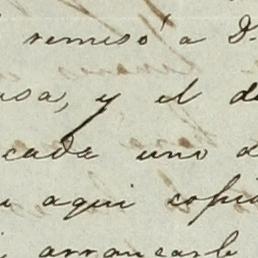 remesó a D.
usa, y el de
cada uno d
aqui copi
arrancarle